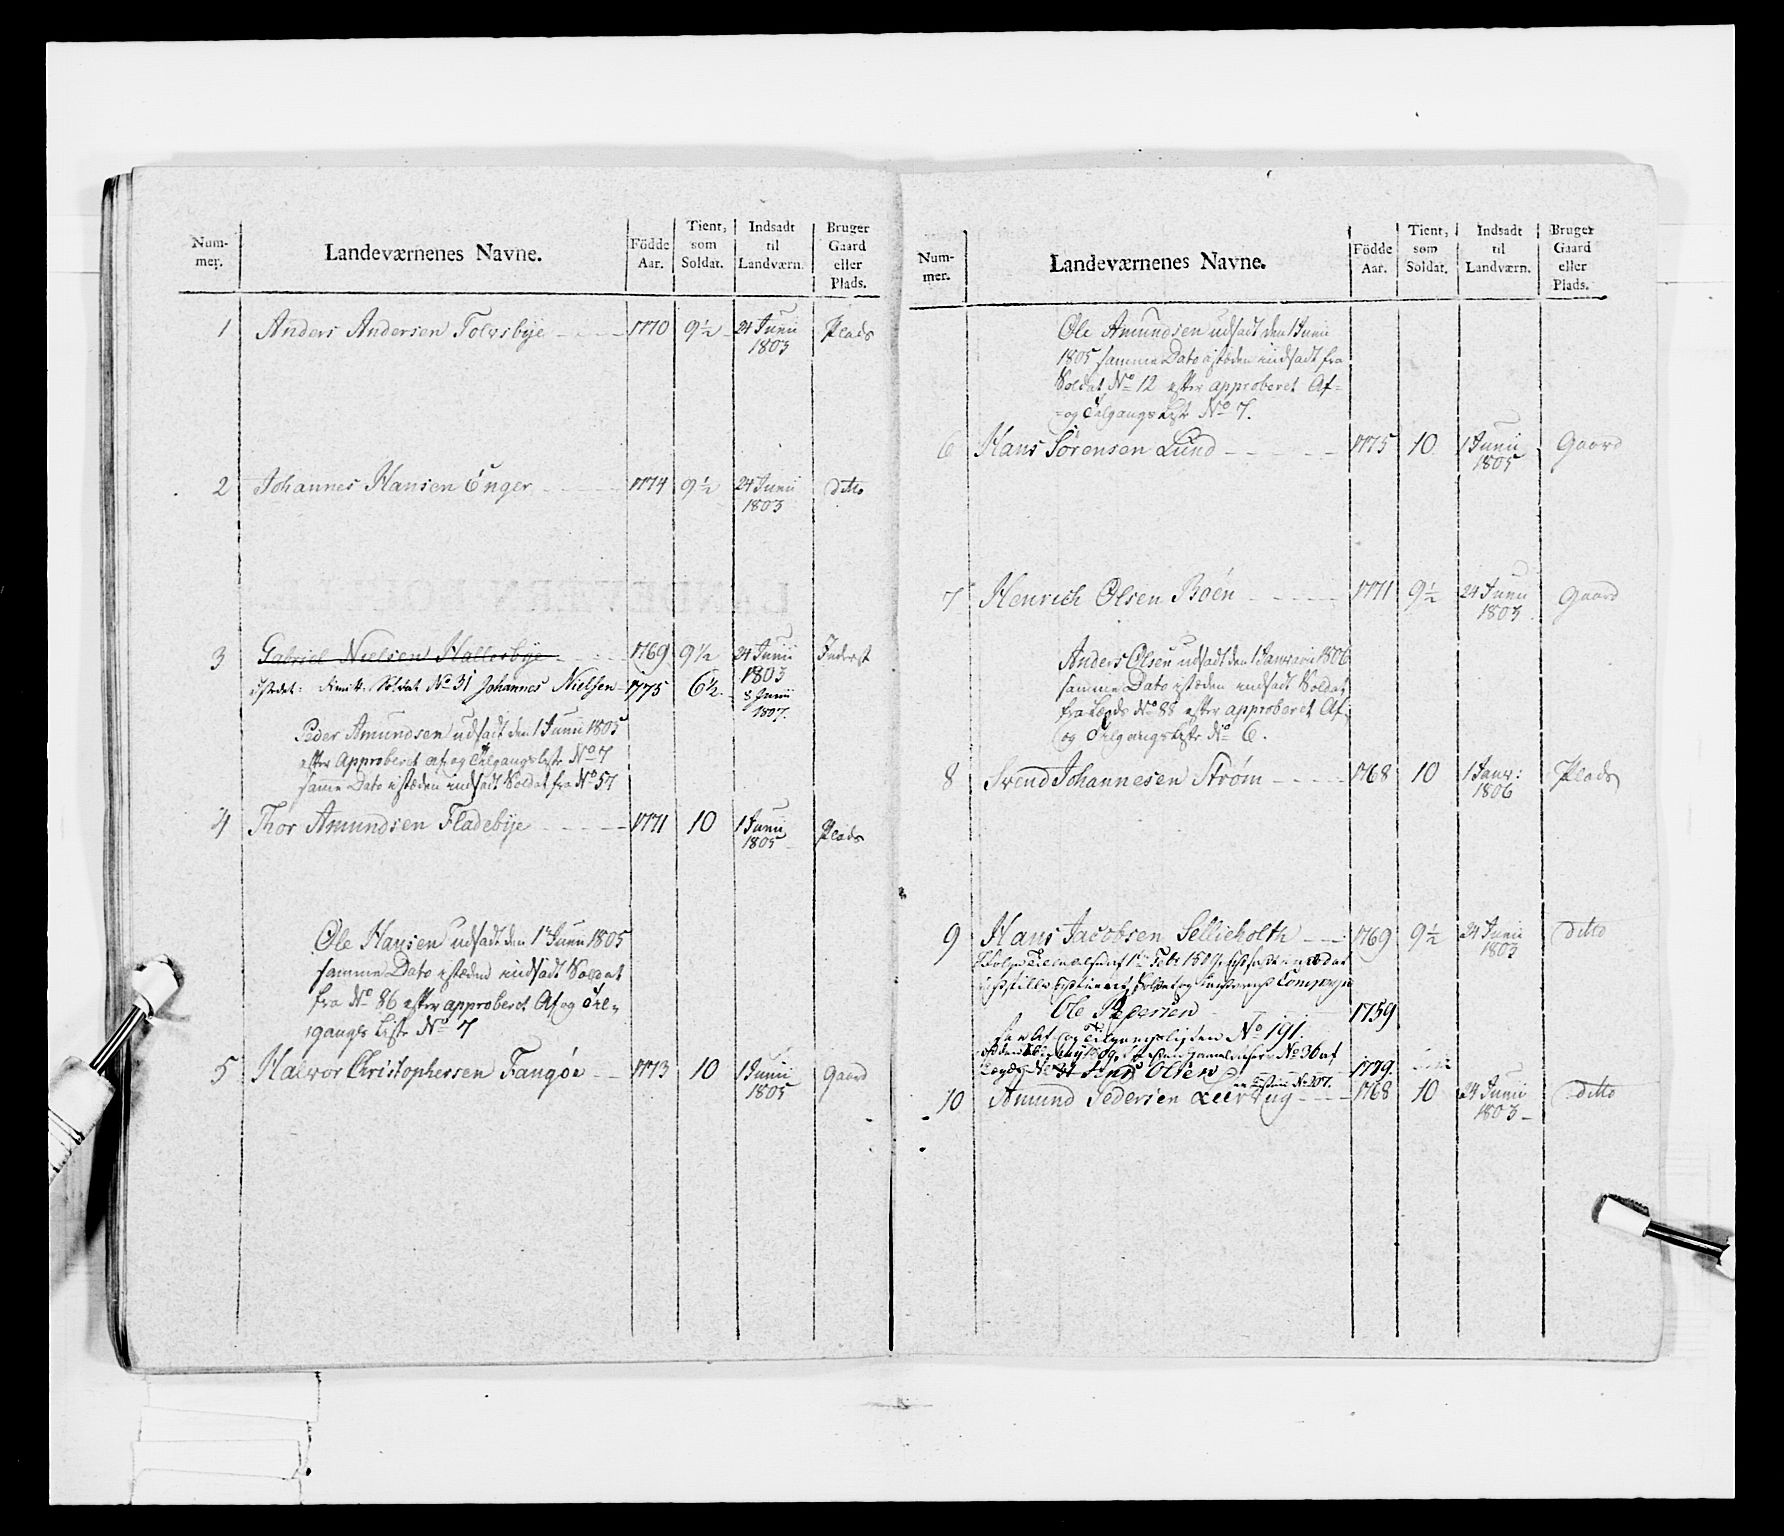 Num-
mer.
Landeværnenes Navne.
Födde
Aar.
Tient,
som
Soldat.
Indsadt
til
Landværn.
Bruger
Gaard
eller
Plads.
1 Anders Andersen Tolvsbye 1770 9½ 24 Junii Plads
1803
2 Johannes Hansen Enger 1774 9½ 24 Junii ditto
1803
3 Gabriel Nielsen Hallesbye 1769 9½ 24 Junii Inderst
1803
istedet: dimitt: Soldat No 31 Johannes Nielsen 1775 6½ 8 Junii
1807.
Peder Amundsen udsadt den 1 Junii 1805
efter Approberet af og Tilgangs Liste No 7
samme Dato istæden indsadt Soldat fra No 57
4 Thor Amundsen Fladebye 1771 10 1 Junii Plads
1805
Ole Hansen udsadt den 1 Junii 1805
samme Dato istæden indsadt Soldat
fra No 86 efter approberet Af og Til-
gangs Liste No 7
5 Halvor Christophersen Fangöe 1773 10 1 Junii Gaard
1805
Num-
mer.
Landeværnenes Navne.
Födde
Aar.
Tient,
som
Soldat.
Indsadt
til
Landværn.
Bruger
Gaard
eller
Plads.
Ole Amundsen udsadt den 1 Junii
1805 samme Dato istæden indsadt fra
Soldat No 12 efter approberet Af-
og Tilgangs Liste No 7.
6 Hans Sörensen Lund 1775 10 1 Junii Gaard
1805
7 Henrich Olsen Boen 1771 9½ 24 Junii Gaard
1803
Anders Olsen udsadt den 1 Januarii 1806
samme Dato istæden indsadt Soldat
fra Lægds No 88 efter approberet Af-
og Tilgangs Liste No 6.
8 Svend Johannesen Ström 1768 10 1 Janv: Plads
1806
9 Hans Jacobsen Sellieholth 1769 9½ 24 Junii ditto
1803
Compagn
Ole Pedersen 1759
Af- og Tilgangslisten No 191.
No 36 af
Jens Olsen 1779.
No 207.
10 Amund Pedersen Leertug 1768 10 24 Junii ditto
1803